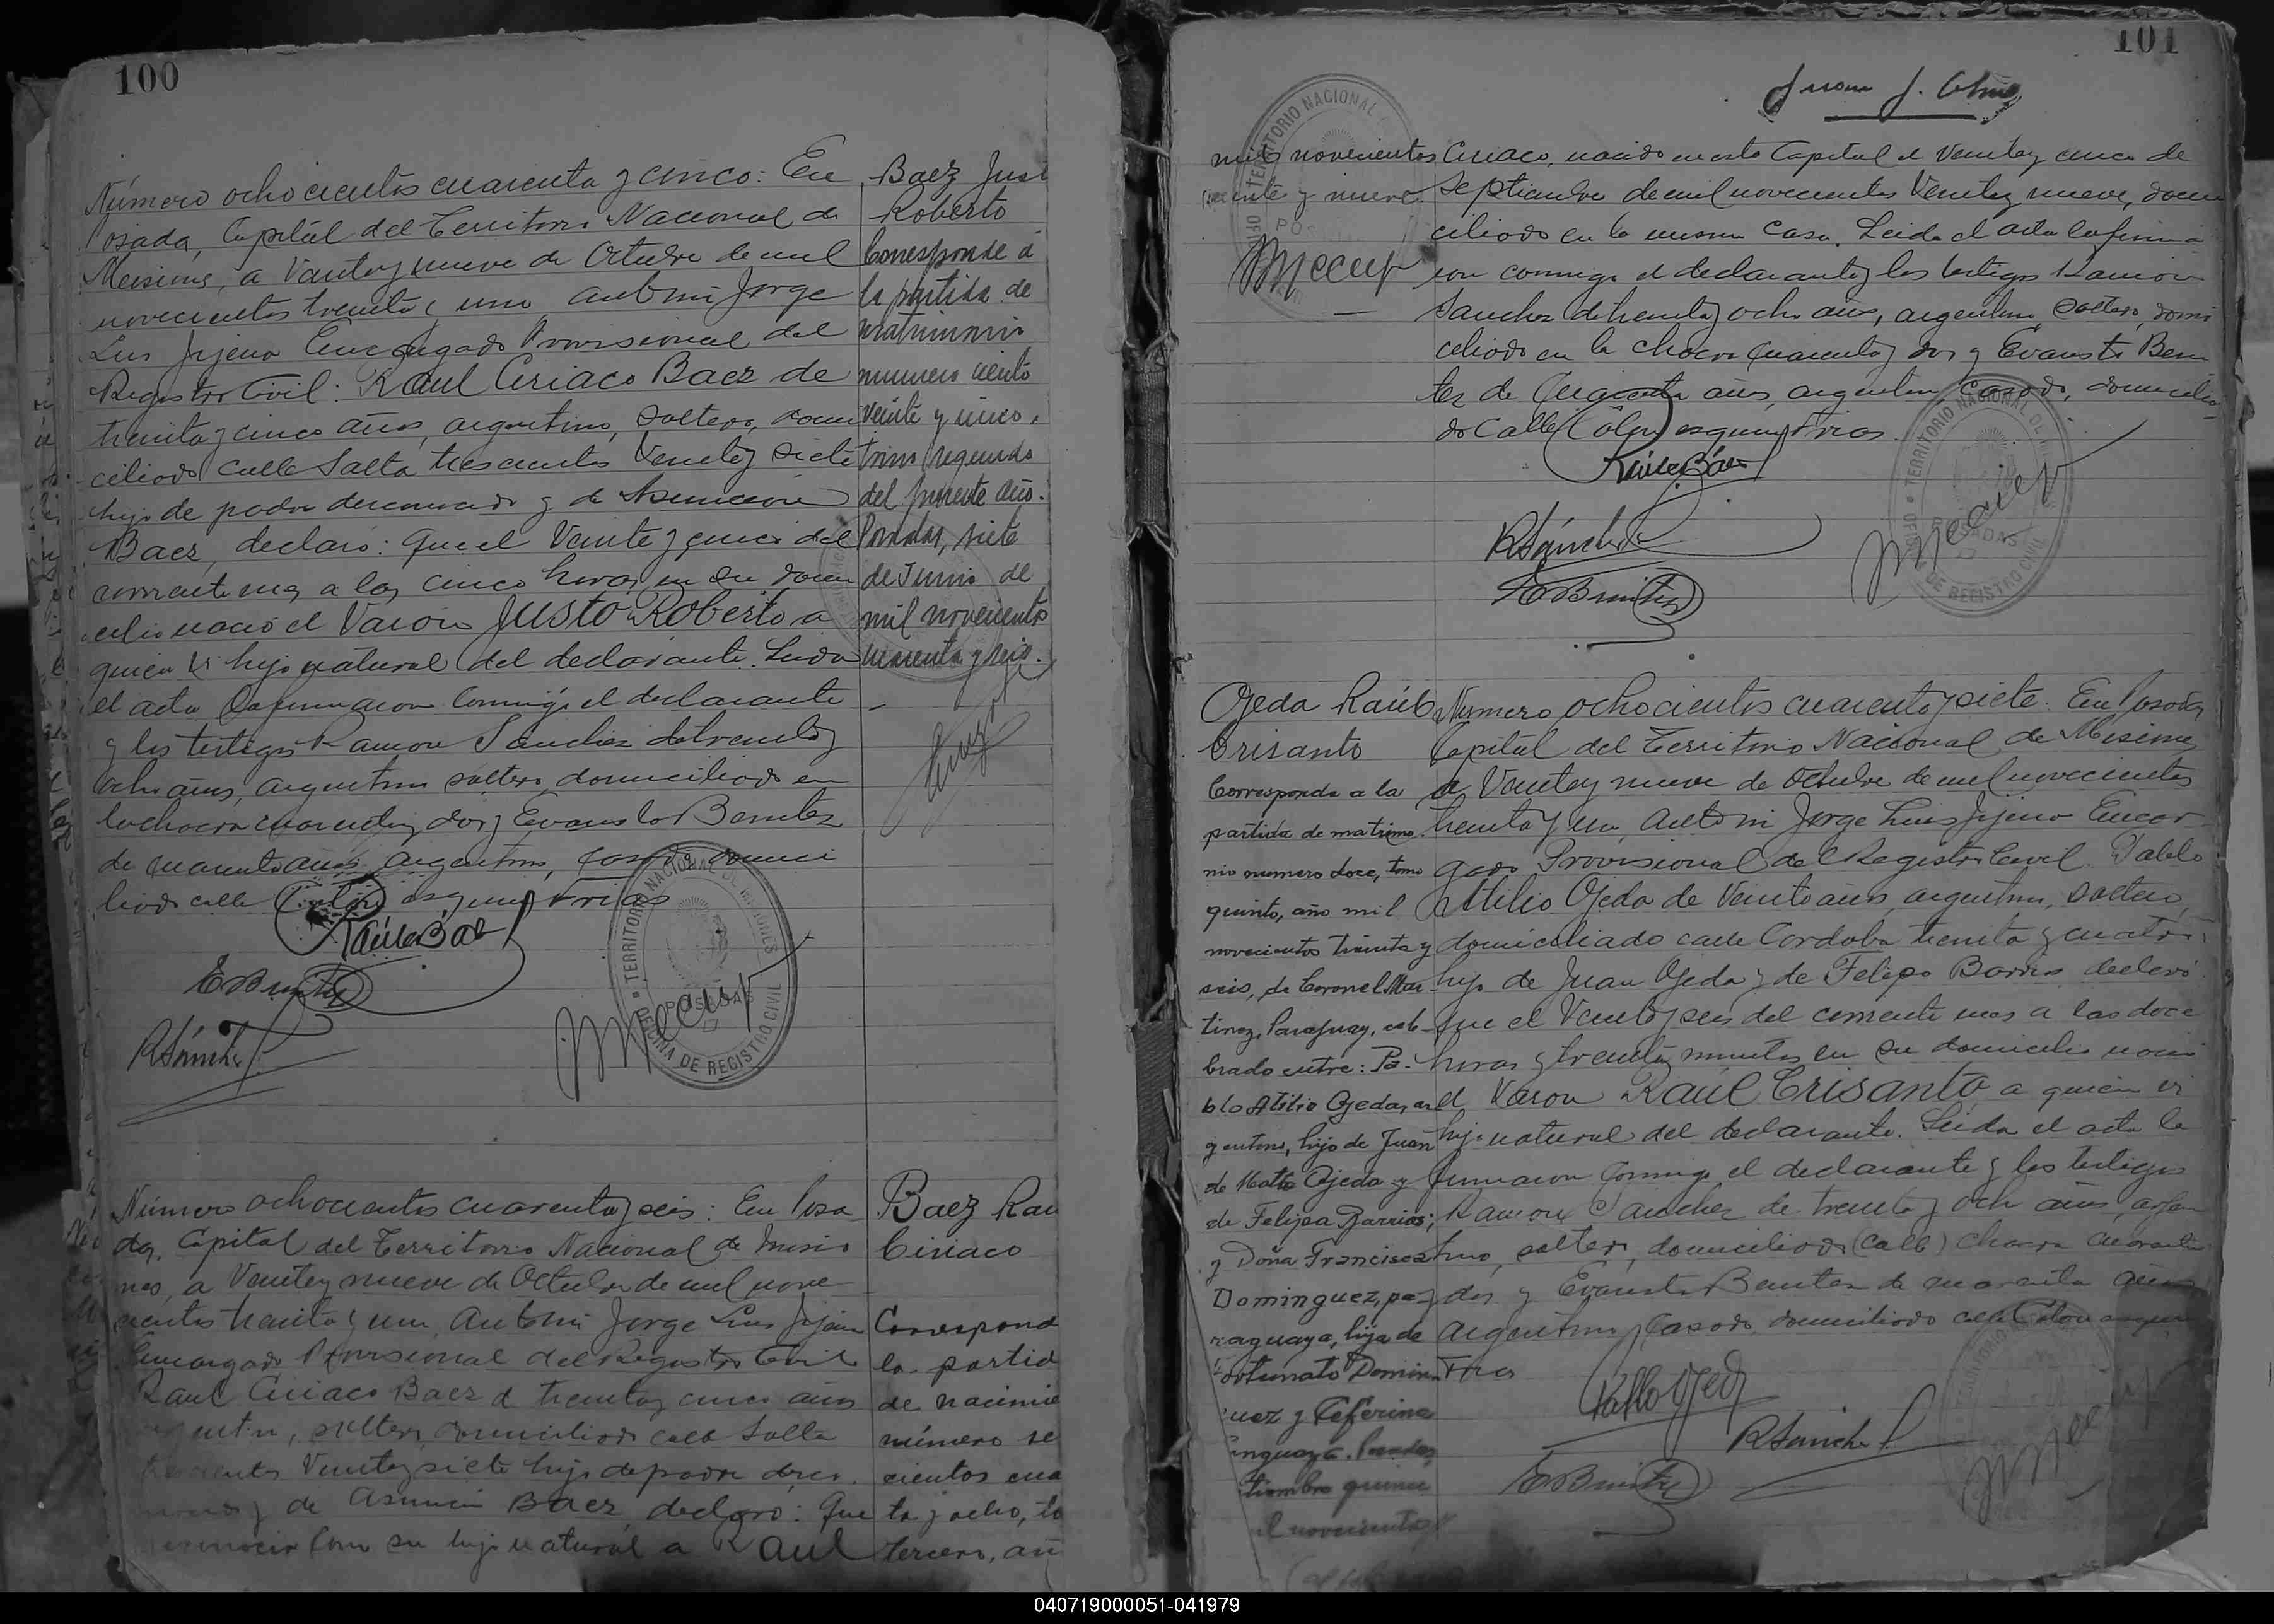 100
Número ochocientos cuarenta y cinco: En
Posada, Capital del Territorio Nacional de
Misiones, a Veinte y nueve de Octubre de mil
novecientos treinta y uno ante mi Jorge
Luis Jijena Encargado Provisional del
Registro Civil: Raul Ciriaco Baez de
treinta y cinco años, argentino, soltero, domi
ciliado calle Salta trescientos Veinte y siete
hijo de padre desconocido y de Asunción
Baez, declaró: Que el Veinte y cinco del
corriente mes a las cinco horas en su domi
cilio nació el Varon Justo Roberto a
quien es hijo natural del declarante. Leida
el acta la firmaron conmigo el declarante
y los testigos Ramon Sanchez de treinta y
ocho años, argentino soltero, domiciliado en
la chacra cuarenta y dos y Evaristo Benitez
de cuarenta años, argentino, casado domici
liado calle Colón esquina Frias
Raúl C Báez
E Benitez
R Sánchez
Baez Just
Roberto
Corresponde á
la partida de
matrimonio
numero ciento
veinte y cinco,
tomo segundo
del presente año.
Posadas, siete
de Junio de
mil novecientos
cuarenta y seis.
TERRITORIO NACIONAL DE MISIONES
POSADAS
OFICINA DE REGISTRO CIVIL
Número ochocientos cuarenta y seis: En Posa
das, Capital del Territorio Nacional de Misio
nes, a Veinte y nueve de Octubre de mil nove
cientos treinta y uno, Ante mi Jorge Luis Jijena
Encargado Provisional del Registro Civil
Raul Ciriaco Baez de treinta y cinco años
argentino, soltero, domiciliado calle Salta
trescientos Veinte y siete hijo de padre desco
nocido y de Asunción Baez, declaró: Que
reconocia como su hijo natural a Raul
Baez Rau
Ciriaco
Correspond
la partid
de nacimie
número se
cientos cua
ta y ocho, to
tercero, añ
101
mil novecientos
veinte y nueve.
Ciriaco, nacido en esta Capital el Veinte y cinco de
Septiembre de mil novecientos Veinte y nueve, domi
ciliado en la misma casa. Leida el acta la firma
ron conmigo el declarante y los testigos Ramon
Sanchez de treinta y ocho años, argentino, soltero, domi
ciliado en la chacra cuarenta y dos y Evaristo Beni
tez de cuarenta años, argentino, casado, domicilia
do calle Colon esquina Frias
Raúl C Báez
R Sánchez
E Benitez
TERRITORIO NACIONAL DE
POSADAS
OFICINA DE REGISTRO CIVIL
Ojeda Raúl
Crisanto
Corresponde a la
partida de matrimo
nio numero doce, tomo
quinto, año mil
novecientos treinta y
seis, de Coronel Mar
tinez, Paraguay, cele
brado entre: Pa-
blo Atilio Ojeda, ar
gentino, hijo de Juan
de Matta Ojeda y
de Felipa Barrios;
y Doña Francisca
Dominguez, pa-
raguaya, hija de
Fortunato Domin
guez y Ceferina
Posadas
Número ochocientos cuarenta y siete: En Posadas
Capital del Territorio Nacional de Misiones
a Veinte y nueve de Octubre de mil novecientos
treinta y uno, Ante mi Jorge Luis Jijena Encar
gado Provisional del Registro Civil. Pablo
Atilio Ojeda de Veinte años, argentino, soltero,
domiciliado calle Cordoba treinta y cuatro
hijo de Juan Ojeda y de Felipa Barrios declaró
Que el Veinte y seis del corriente mes a las doce
horas y treinta minutos en su domicilio nació
el Varon Raúl Crisanto a quien es
hijo natural del declarante. Leida el acta la
firmaron conmigo el declarante y los testigos
Ramon Sanchez de treinta y ocho años, argen
tino, soltero, domiciliado (calle) chacra cuarenta
y dos y Evaristo Benitez de cuarenta años
argentino, casado, domiciliado calle Colon esquina
Frias
Pablo Ojeda
R Sánchez
E Benitez
040719000051-041979